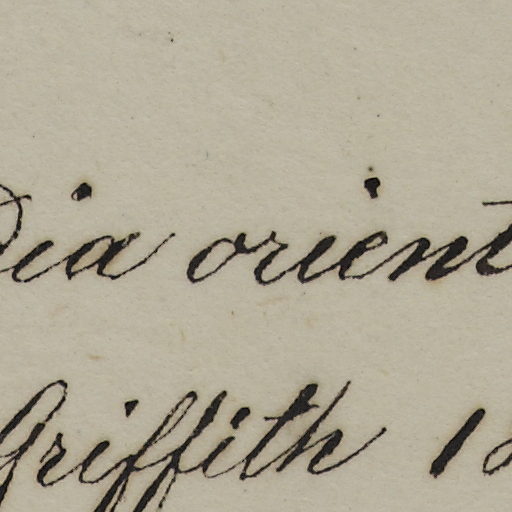 dia orient
Griffith 1